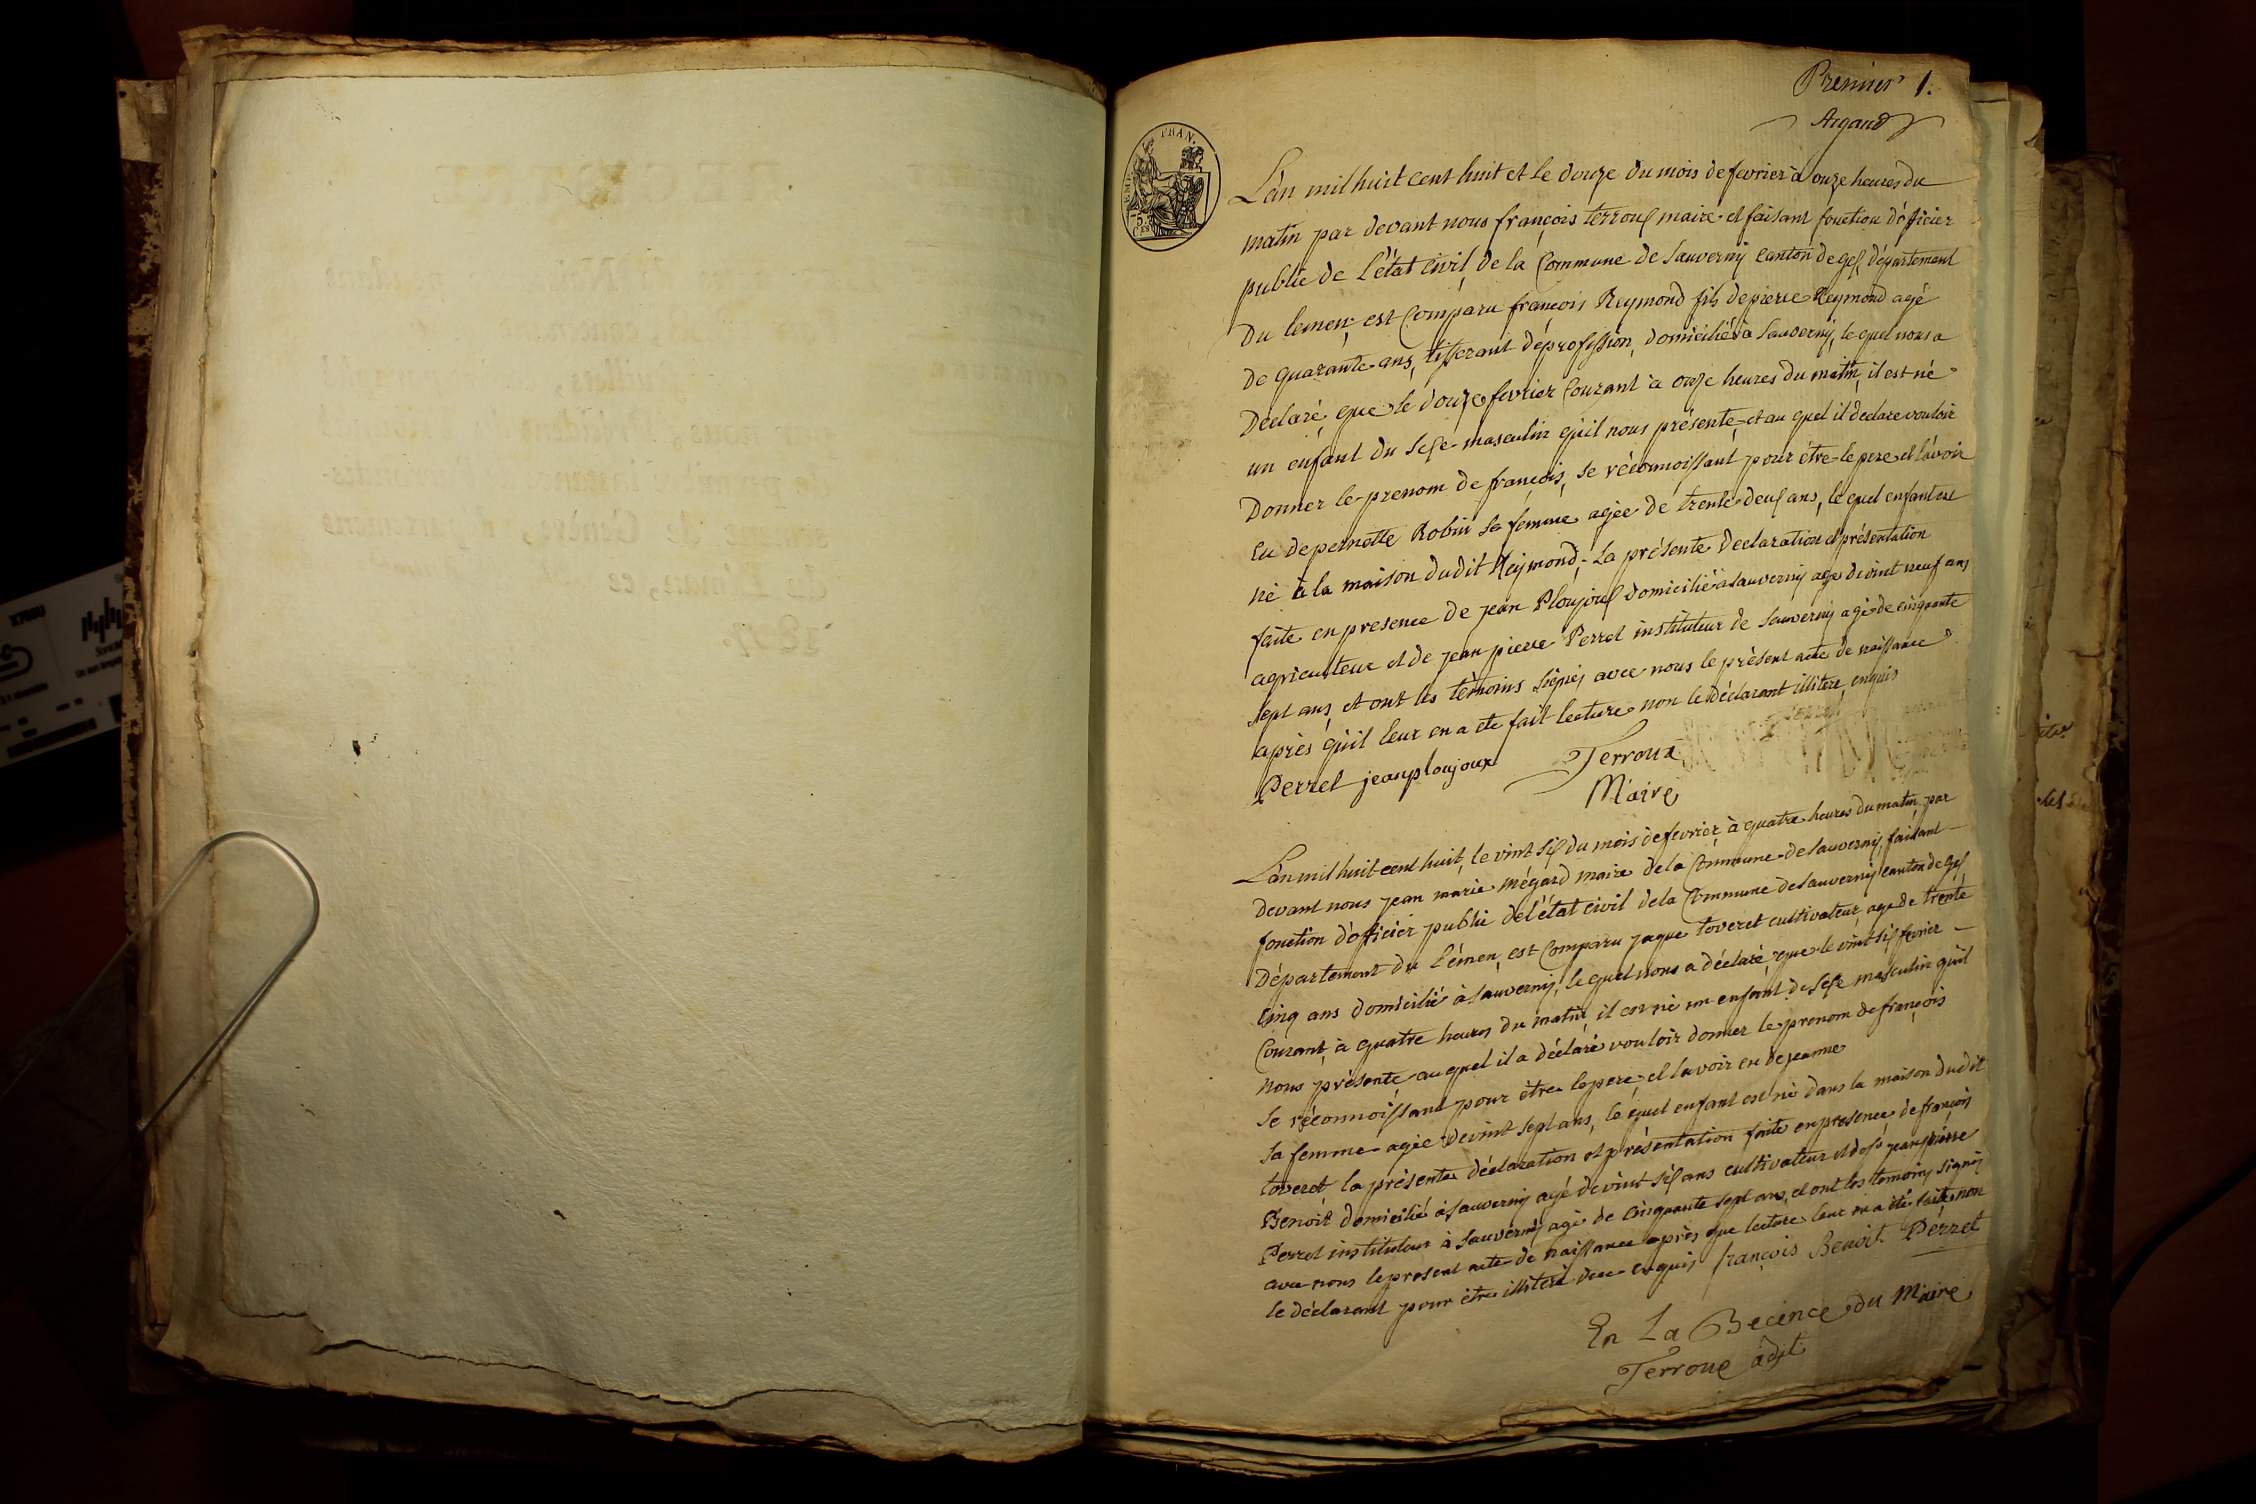 Premier 1.
Argand
EMP. FRAN.
L'an mil huit cent huit et le douze du mois de fevrier à onze heures du
matin par devant nous françois terroux maire et faisant fonction d'officier
public de l'état civil de la Commune de Sauverny Canton de gex département
Du lemen, est Comparu françois Reymond fils de pierre Reymond agé
de quarante ans, tisserant de profession, domicilié à Sauverny, le quel nous a
Declaré, que le douze fevrier Courant à onze heures du matin, il est né
un enfant du sexe masculin qu'il nous présente et au quel il declare vouloir
Donner le prenom de françois, se réconnoissant pour être le pere et l'avoir
Eu de pernette Robin sa femme agée de trente deux ans, le quel enfant est
né à la maison dudit Reymond; La présente Declaration et présentation
faite en presence de jean Ploujoux domicilié à Sauverny agé de vint neuf ans
agriculteur et de jean pierre Perret instituteur de Sauverny agé de cinquante
sept ans, et ont les témoins signés avec nous le présent acte de naissance
après qu'il leur en a été fait lecture non le déclarant illitere enquis
Perret jean ploujoux Terroux
Maire
L'an mil huit cent huit, le vint six du mois de fevrier, à quatre heures du matin, par
devant nous jean marie mégard maire de la Commune de Sauverny, faisant
fonction d'officier public de l'état civil de la Commune de Sauverny canton de gex
Département du Lémen, est Comparu jaque toveret cultivateur, agé de trente
Cinq ans domicilié à Sauverny, le quel nous a déclaré, que le vint six fevrier
Courant, à quatre heures du matin, il est né un enfant de sexe masculin qu'il
nous présente au quel il a déclaré vouloir donner le prenom de françois
Se réconnoissant pour être le pere, et l'avoir eu de jeanne
Sa femme agée de vint sept ans, le quel enfant est né dans la maison dudit
toveret la présente déclaration et présentation faite en presence de françois
Benoit domicilié à Sauverny agé de vint six ans cultivateur et de sr jean pierre
Perret instituteur à Sauverny agé de cinquante sept ans, et ont les temoins signés
avec nous le présent acte de naissance après que lecture leur en a été faite, non
le déclarant pour être illiteré enquis françois Benoit Perret
En La Becence du Maire
Terroux adjt